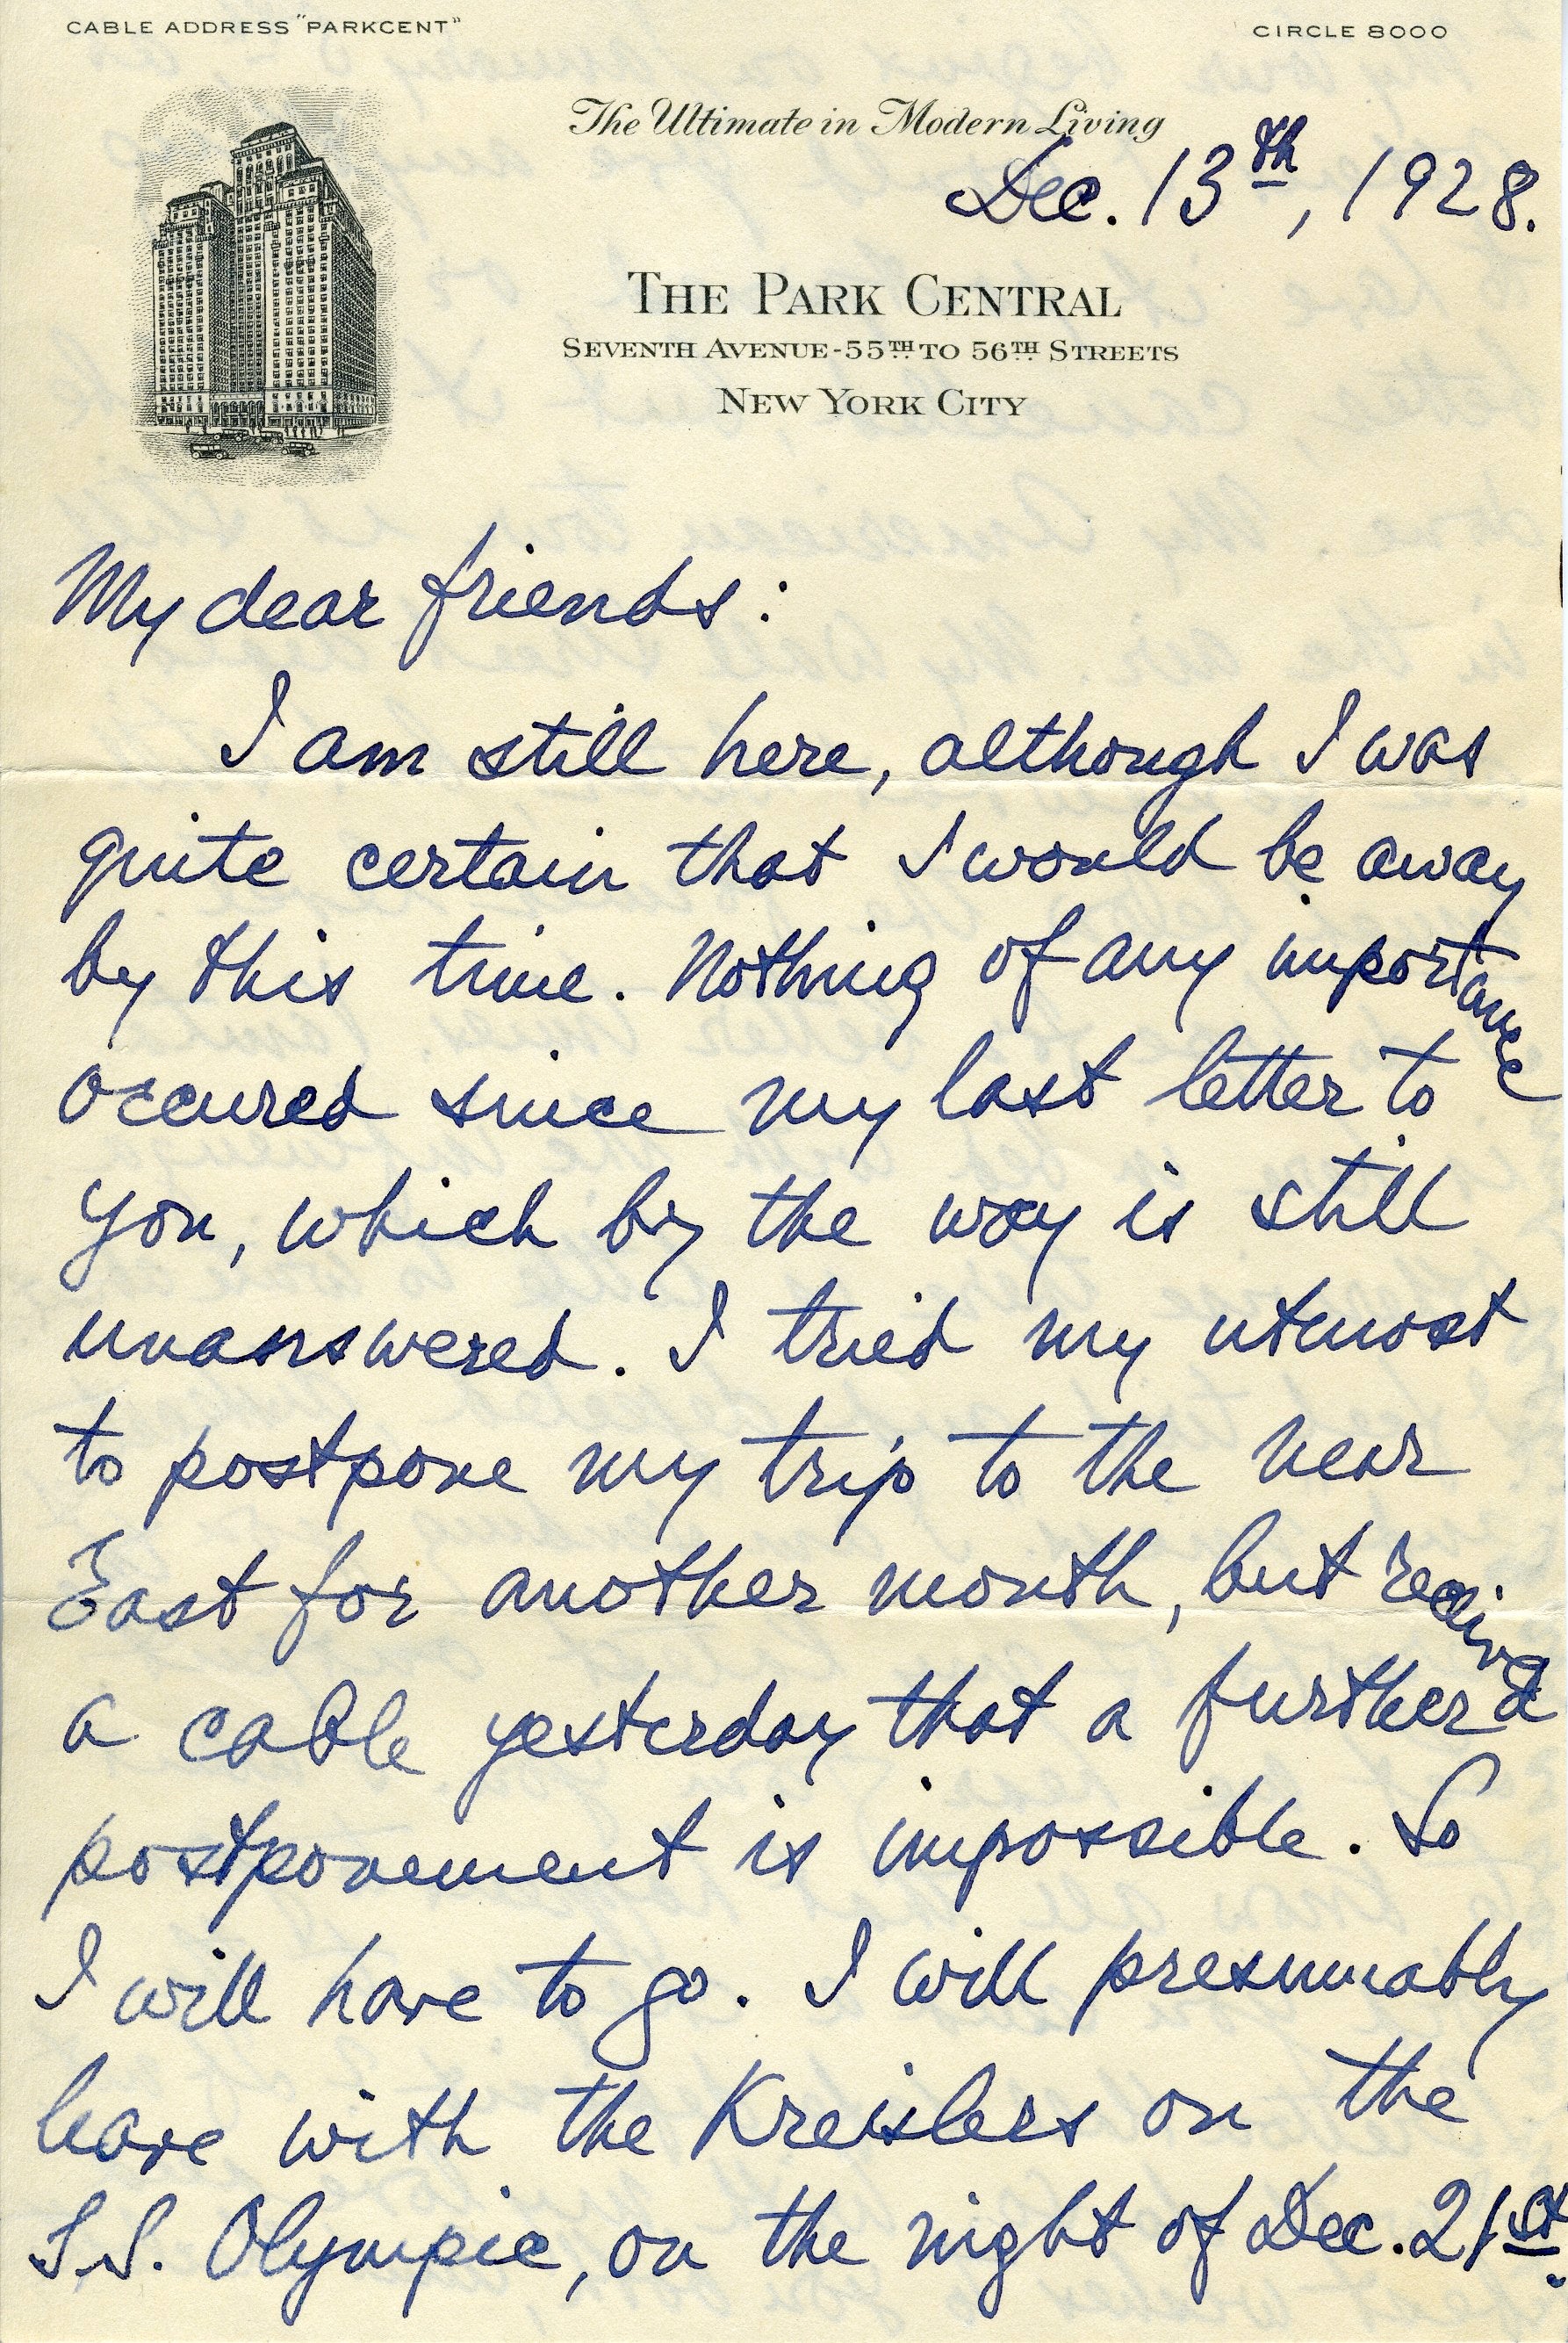 CABLE ADDRESS "PARKCENT"
CIRCLE 8000
The Ultimate in Modern Living
Dec. 13th, 1928.
THE PARK CENTRAL
SEVENTH AVENUE - 55TH TO 56TH STREETS
NEW YORK CITY
My dear friends:
I am still here, although I was
quite certain that I would be away
by this time. Nothing of any importance
occured since my last letter to
you, which by the way is still
unanswered. I tried my utmost
to postpone my trip to the near
East for another month, but received
a cable yesterday that a further
postponement is impossible. So
I will have to go. I will presumably
leave with the Kreislers on the
S.S. Olympic, on the night of Dec. 21st.